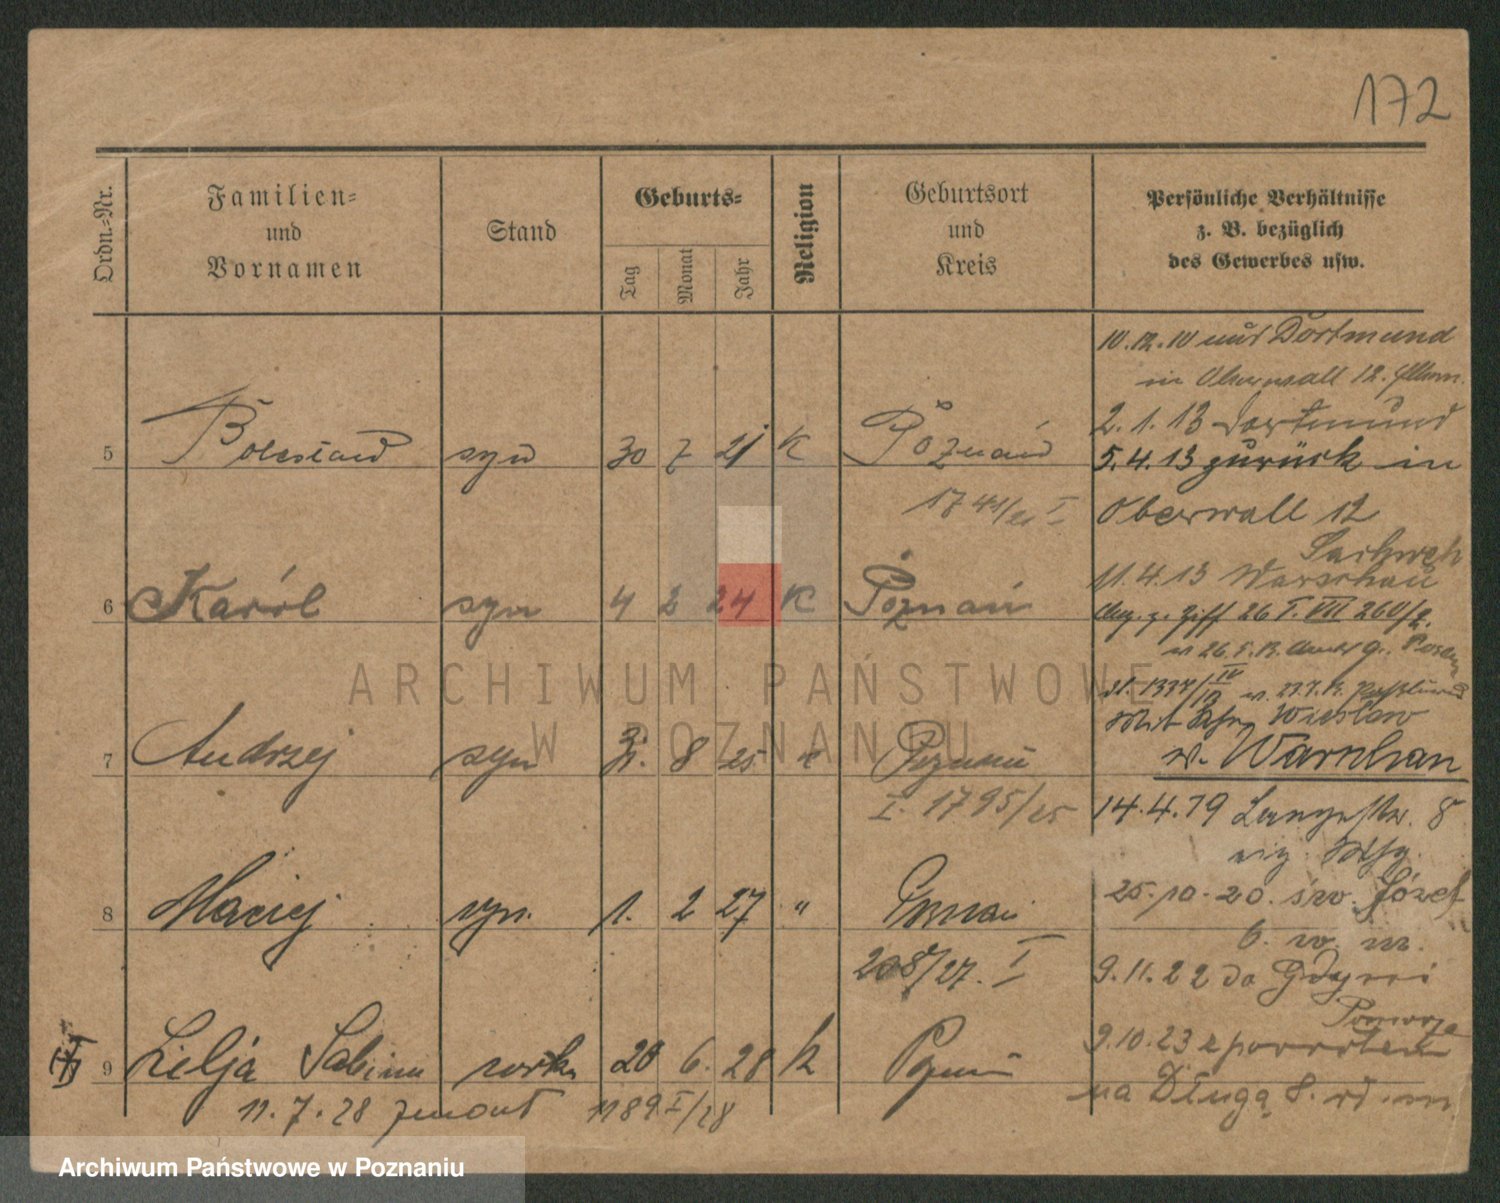 172
Ordn.-Nr.
Familien-
und
Vornamen
Stand
Geburts-
Tag
Monat
Jahr
Religion
Geburtsort
und
Kreis
Persönliche Verhältnisse
z. B. bezüglich
des Gewerbes usw.
5 Bolesław syn 30 7 21 K Poznań
1741/21 I
6 Karól syn 4 2 24 K Poznań
7 Andrzej syn 31. 8 25 Poznań
I. 1795/25
8 Maciej syn. 1. 2 27 "
208/27. I
9 Lilja Sabina córka 20 6. 28 K Poznań
11.7.28 1189 I/28
10.12.10 Dortmund
in Oberwall 12.
2.1.13 Dortmund
5.4.13 zurück in
Oberwall 12
11.4.13 Warschau
26 I. VII 260/
Posen
14.4.19 8
25.10.20. św. Józef
6. w. m.
9.11.22 do Gdyni
9.10.23 z powrotem
na Długą 8.
ARCHIWUM PAŃSTWOWE
W POZNANIU
Archiwum Państwowe w Poznaniu